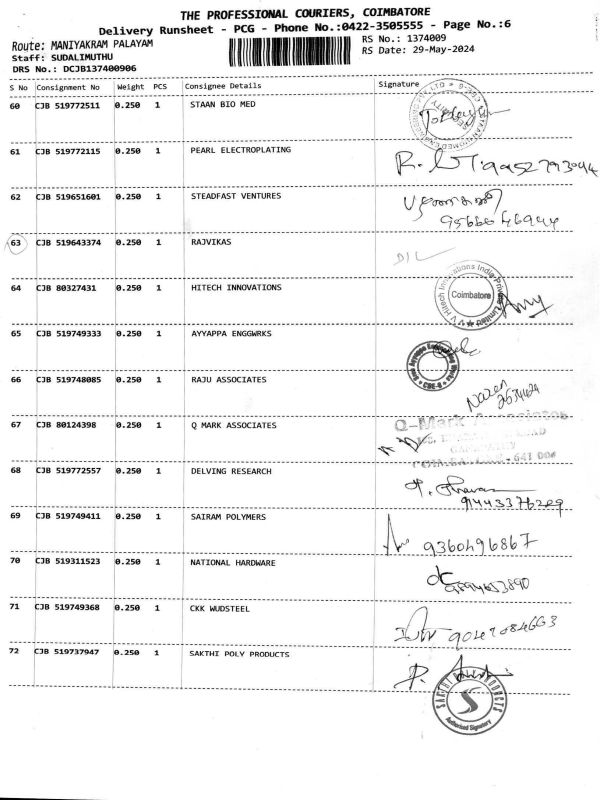 THE PROFESSIONAL COURIERS, COIMBATORE
Delivery Runsheet - PCG - Phone No.:0422-3505555 - Page No.:6
Route: MANIYAKRAM PALAYAM
RS No.: 1374009
Staff: SUDALIMUTHU
RS Date: 29-May-2024
DRS No.: DCJB137400906
S No Consignment No Weight PCS Consignee Details Signature
60 CJB 519772511 0.250 1 STAAN BIO MED
61 CJB 519772115 0.250 1 PEARL ELECTROPLATING
62 CJB 519651601 0.250 1 STEADFAST VENTURES
63 CJB 519643374 0.250 1 RAJVIKAS
64 CJB 80327431 0.250 1 HITECH INNOVATIONS
Coimbatore
65 CJB 519749333 0.250 1 AYYAPPA ENGGWRKS
CBE-6
66 CJB 519748085 0.250 1 RAJU ASSOCIATES
67 CJB 80124398 0.250 1 Q MARK ASSOCIATES
Q-Mark Associates
68 CJB 519772557 0.250 1 DELVING RESEARCH
9443376289
69 CJB 519749411 0.250 1 SAIRAM POLYMERS
9360496867
70 CJB 519311523 0.250 1 NATIONAL HARDWARE
71 CJB 519749368 0.250 1 CKK WUDSTEEL
9047084663
72 CJB 519737947 0.250 1 SAKTHI POLY PRODUCTS
Authorised Signatory